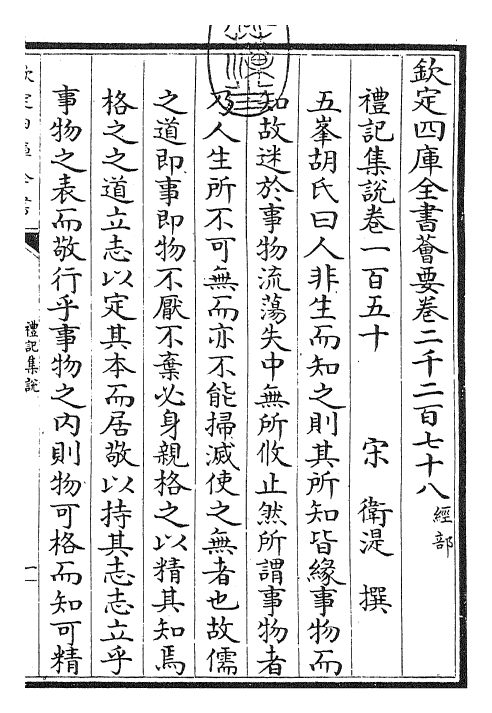 欽定四庫全書薈要卷二千二百七十八經部
禮記集說卷一百五十　宋　衛湜　撰
五峯胡氏曰人非生而知之則其所知皆緣事物而
知故迷於事物流蕩失中無所攸止然所謂事物者
乃人生所不可無而亦不能掃滅使之無者也故儒
之道即事即物不厭不棄必身親格之以精其知焉
格之之道立志以定其本而居敬以持其志志立乎
事物之表而敬行乎事物之內則物可格而知可精
禮記集說
一